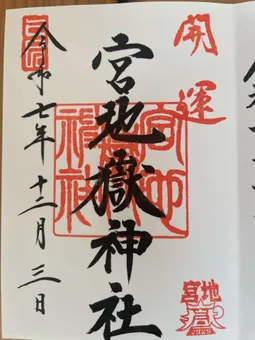 開運
宮地嶽神社
令和七年十二月三日
宮地嶽神社
宮地
嶽
2025